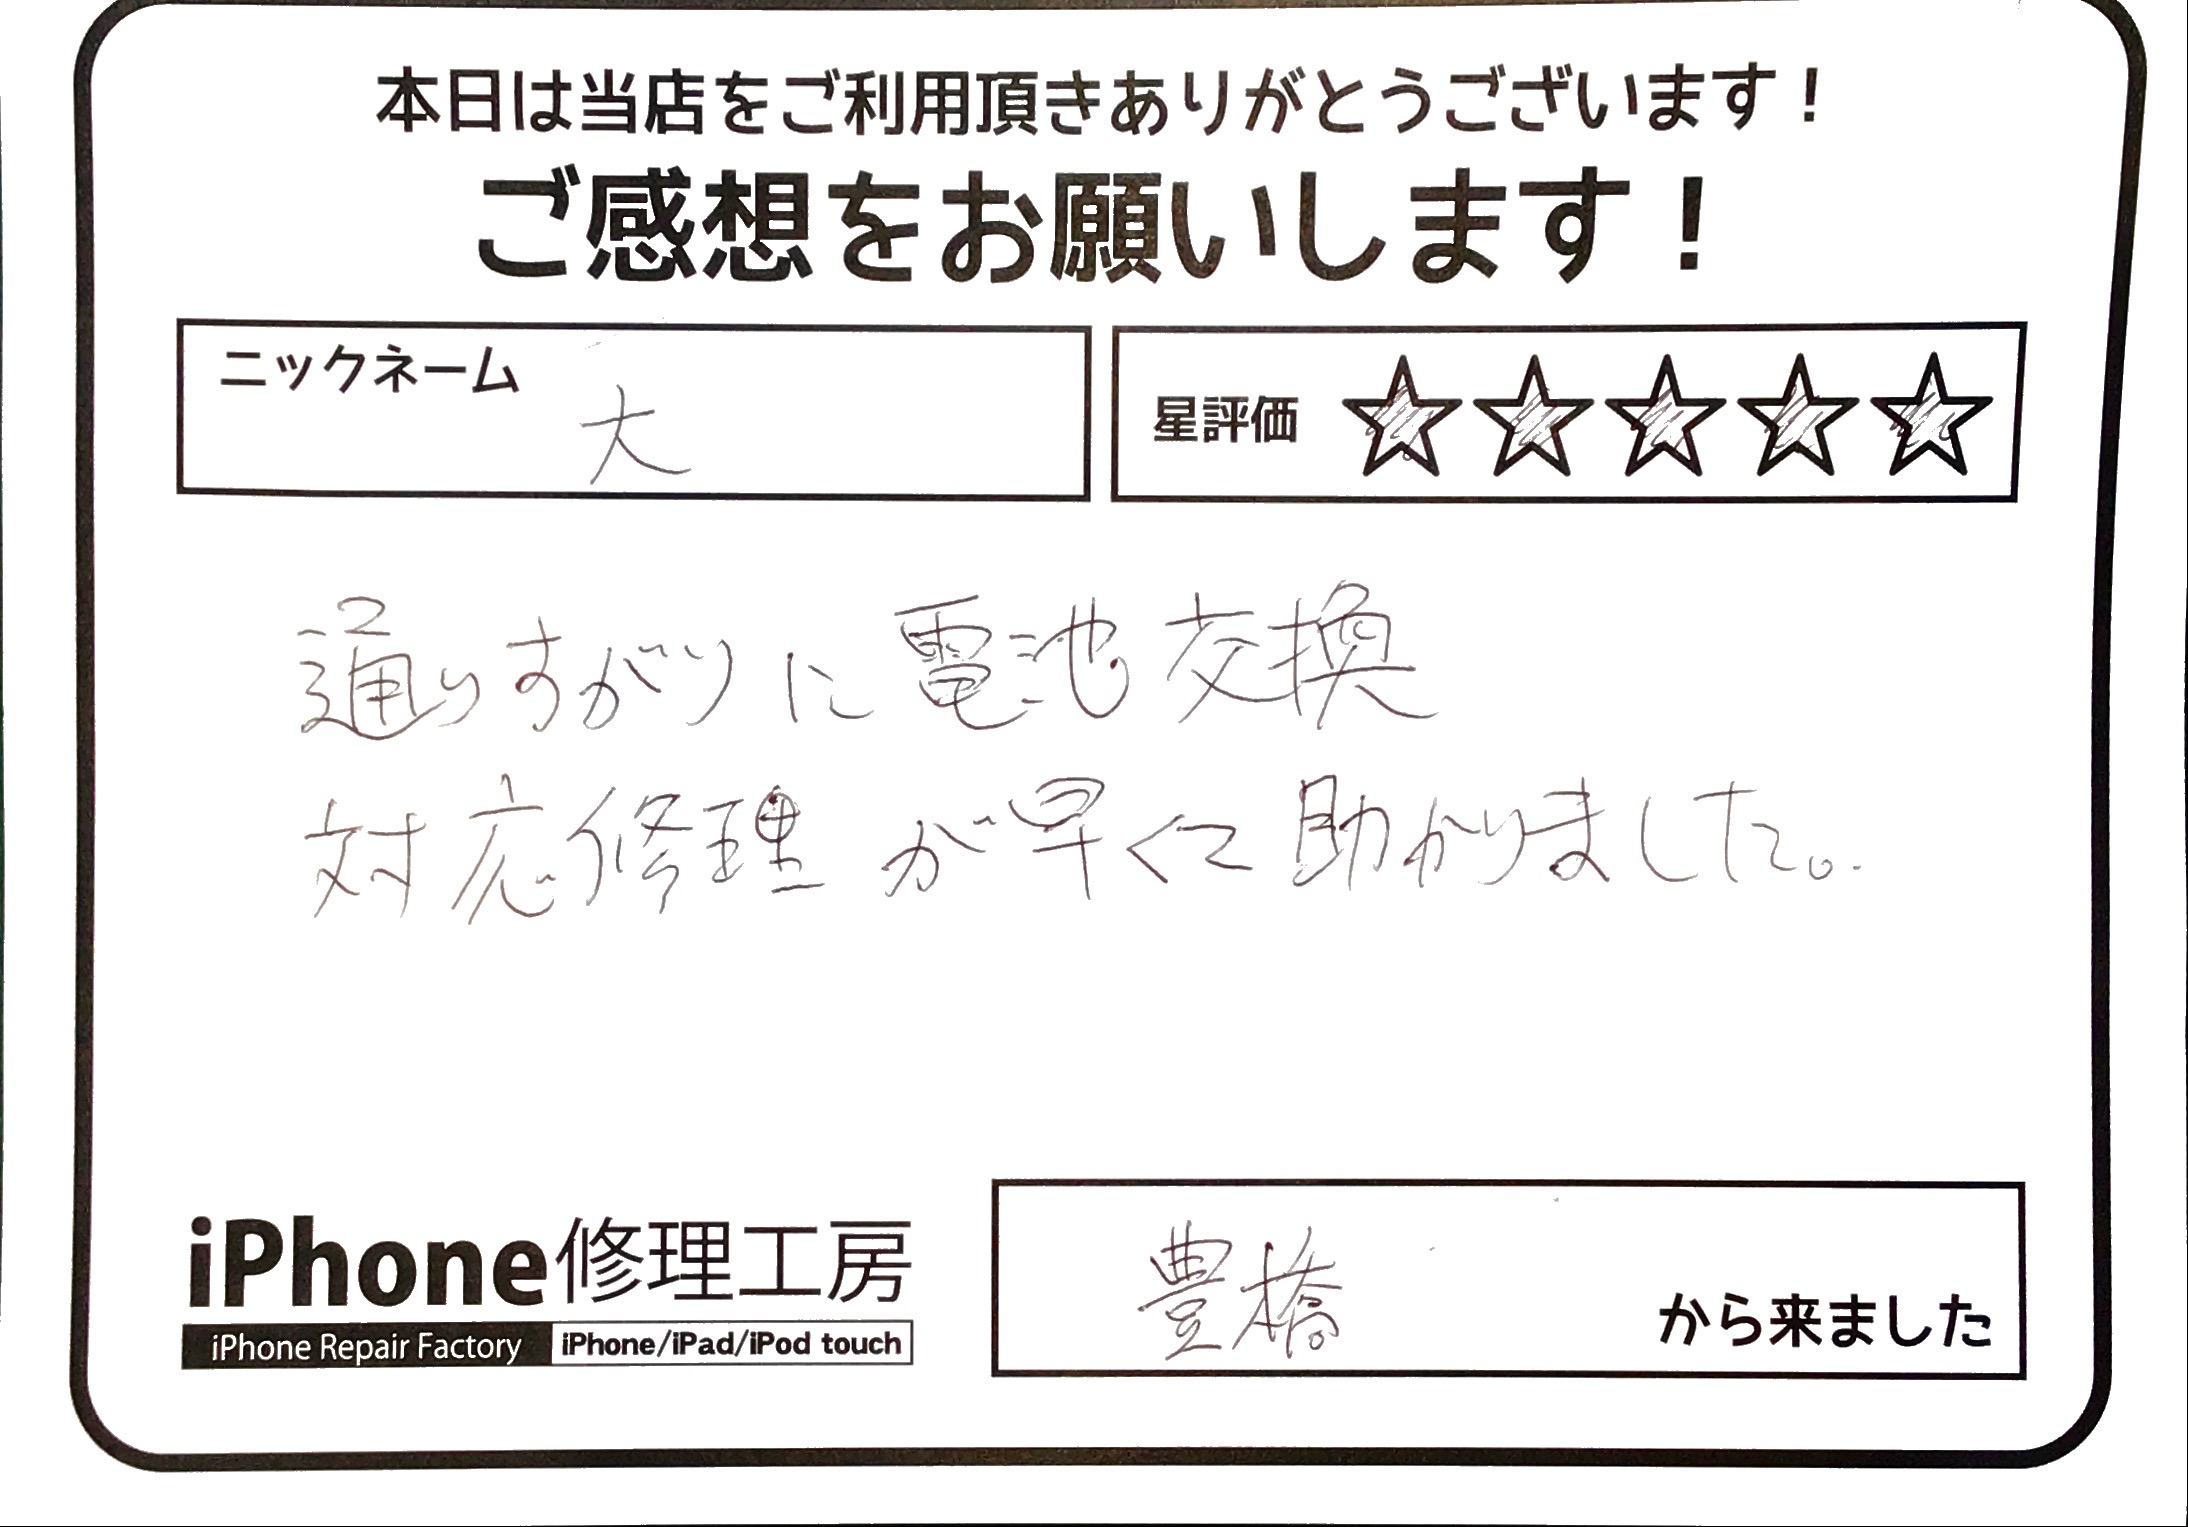 本日は当店をご利用頂きありがとうございます！
ご感想をお願いします！
ニックネーム
大
星評価
通りすがりに電池交換
対応修理が早くて助かりました。
iPhone修理工房
iPhone Repair Factory iPhone/iPad/iPod touch
豊橋
から来ました